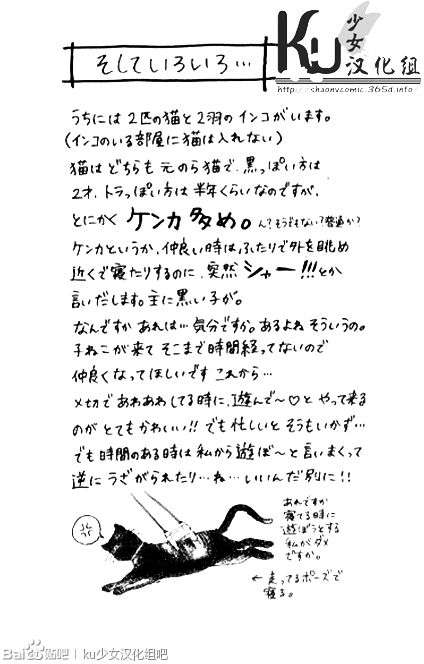 そしていろいろ…
KU少女汉化组
http://shaonvcomic.365d.info
うちには2匹の猫と2羽のインコがいます。
(インコのいる部屋に猫は入れない)
猫はどちらも元のら猫で、黒っぽい方は
2才、トラっぽい方は半年くらいなのですが、
とにかくケンカ多め。ん?そうでもない?普通か?
ケンカというか、仲良い時はふたりで外を眺め
近くで寝たりするのに、突然シャー!!!とか
言いだします。主に黒い子が。
なんですかあれは…気分ですか。あるよねそういうの。
子ねこが来てそこまで時間経ってないので
仲良くなってほしいですこれから…
〆切であわあわしてる時に、遊んで〜♡とやって来る
のがとてもかわいい!!でも忙しいとそうもいかず…
でも時間のある時は私から遊ぼ〜と言いまくって
逆にうざがられたり…ね…いいんだ別に!!
あれですか
寝てる時に
遊ぼうとする
私がダメ
ですか。
←走ってるポーズで
寝る。
Bai贴吧 | ku少女汉化组吧